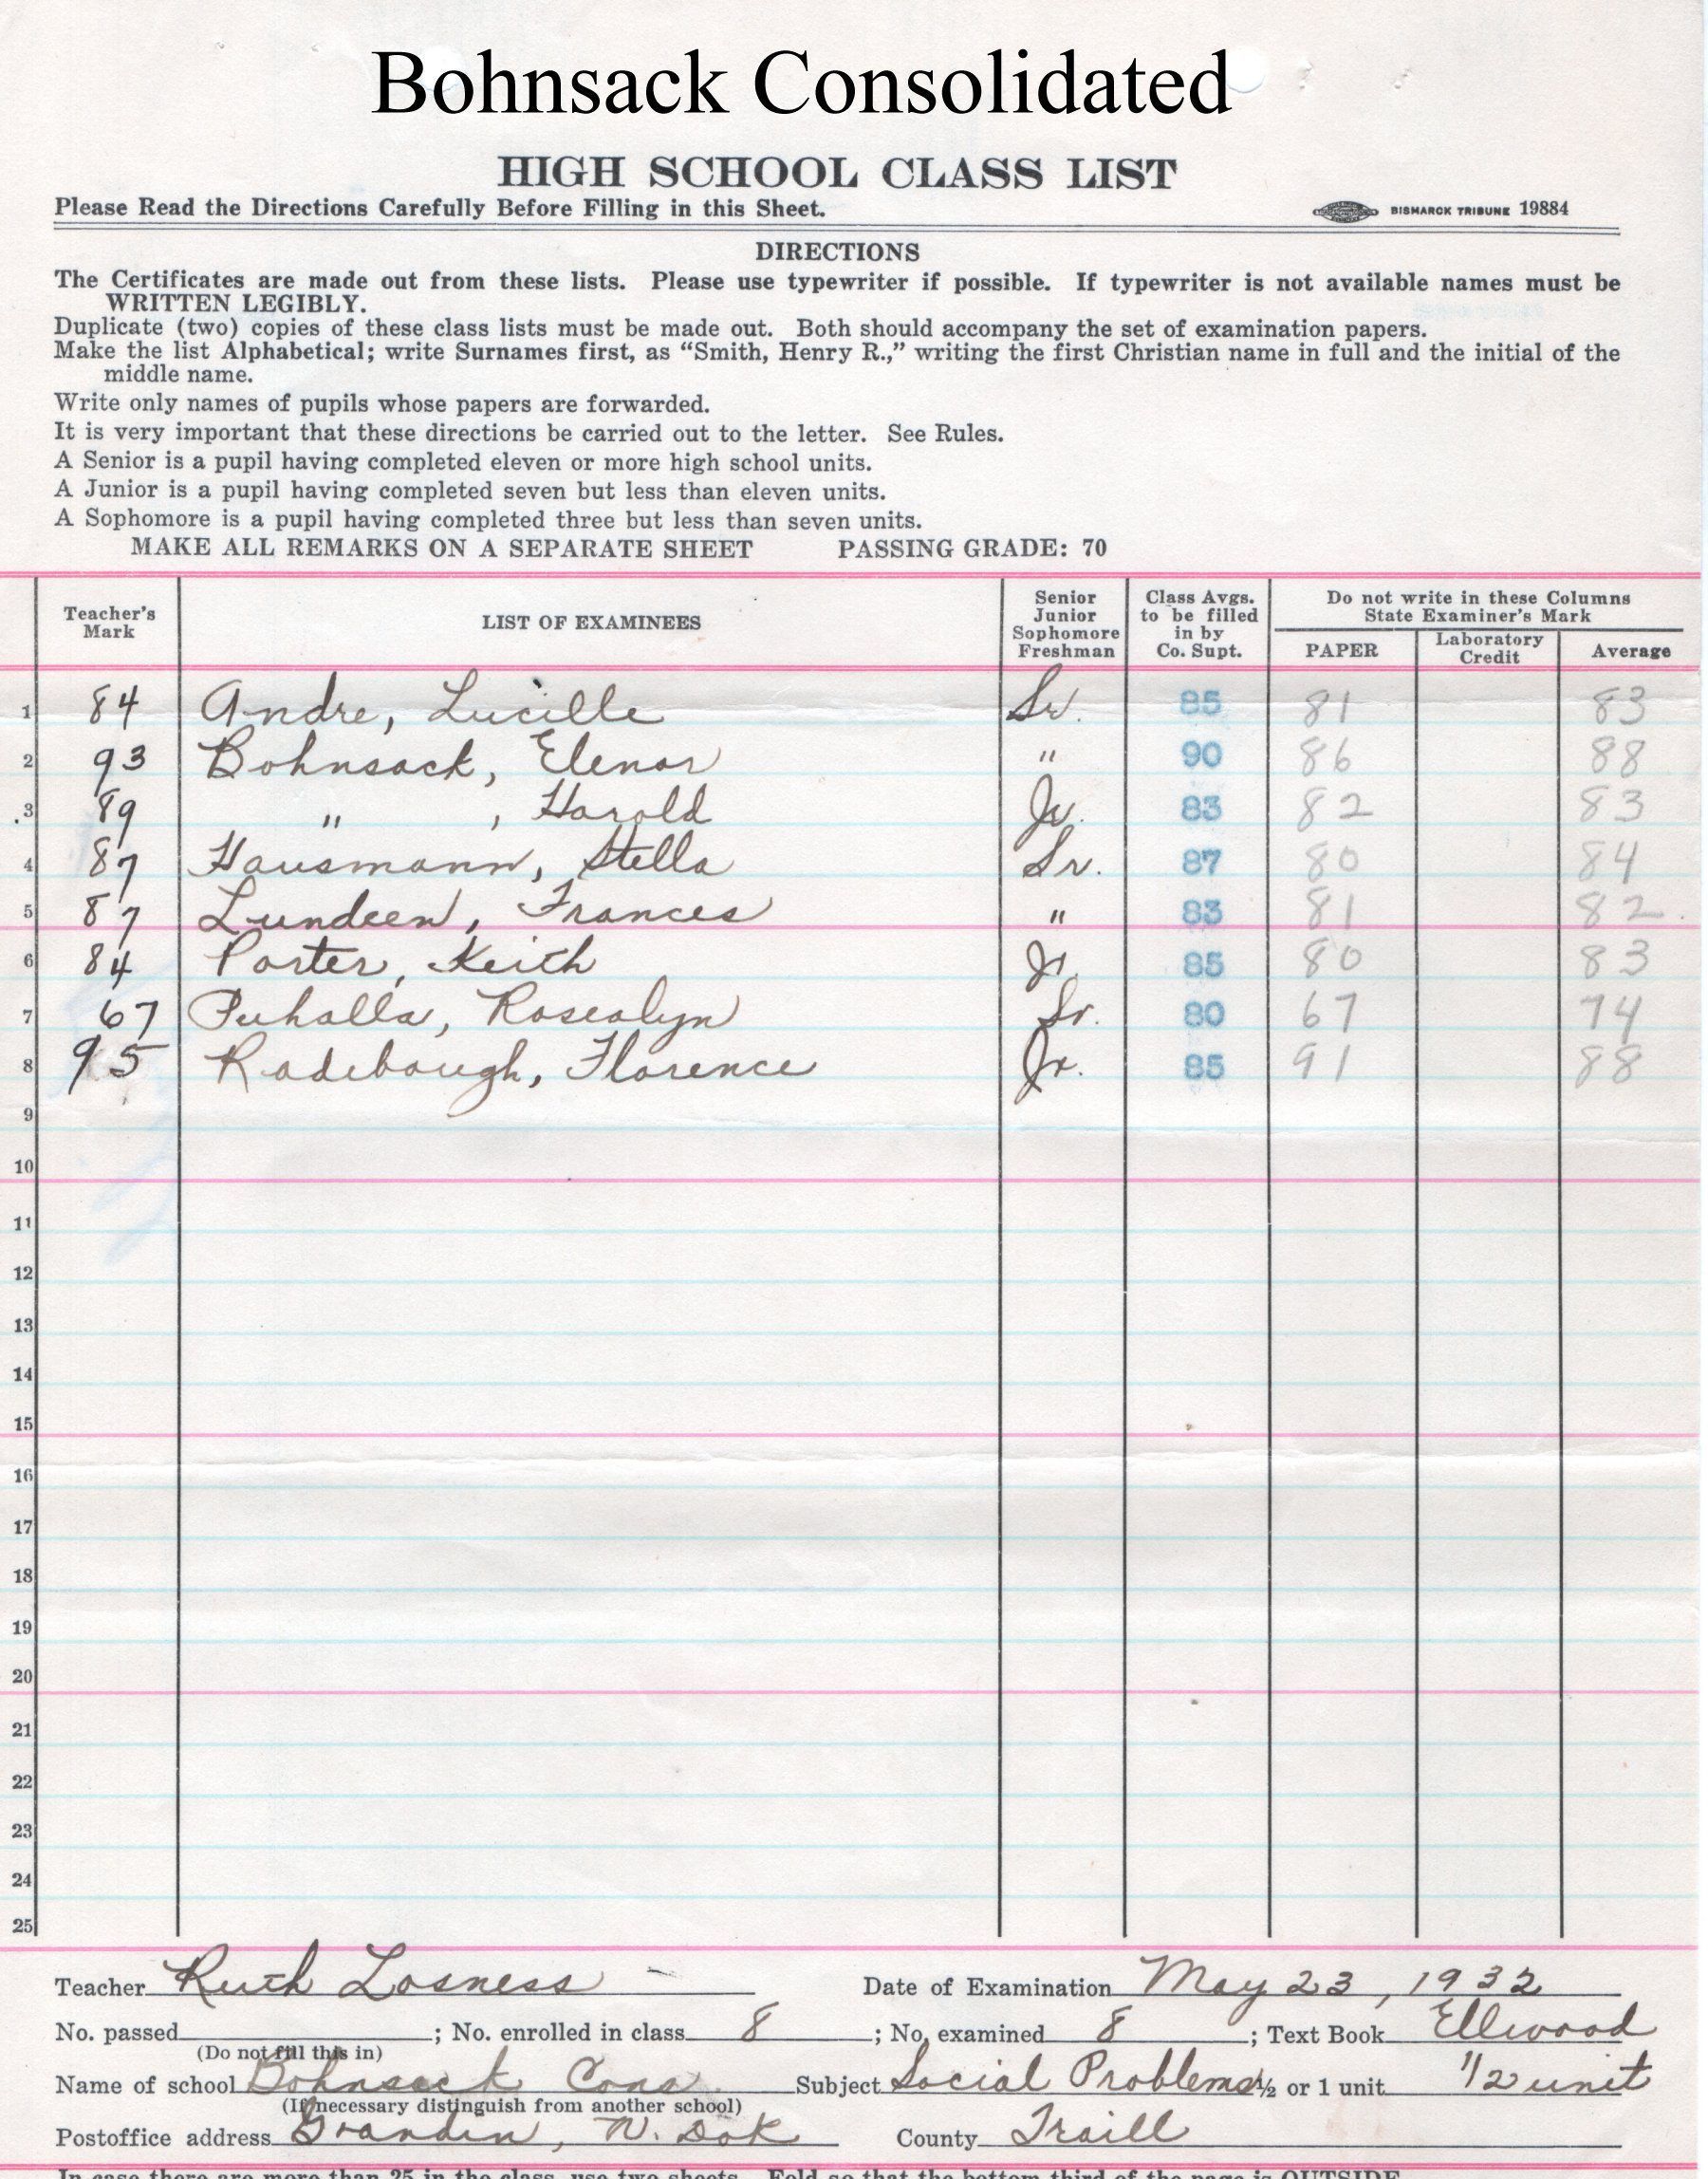 Bohnsack Consolidated
HIGH SCHOOL CLASS LIST
Please Read the Directions Carefully Before Filling in this Sheet. BISMARCK TRIBUNE 19884
DIRECTIONS
The Certificates are made out from these lists. Please use typewriter if possible. If typewriter is not available names must be
WRITTEN LEGIBLY.
Duplicate (two) copies of these class lists must be made out. Both should accompany the set of examination papers.
Make the list Alphabetical; write Surnames first, as “Smith, Henry R.,” writing the first Christian name in full and the initial of the
middle name.
Write only names of pupils whose papers are forwarded.
It is very important that these directions be carried out to the letter. See Rules.
A Senior is a pupil having completed eleven or more high school units.
A Junior is a pupil having completed seven but less than eleven units.
A Sophomore is a pupil having completed three but less than seven units.
MAKE ALL REMARKS ON A SEPARATE SHEET PASSING GRADE: 70
Teacher's Mark LIST OF EXAMINEES Senior Junior Sophomore Freshman Class Avgs. to be filled in by Co. Supt. Do not write in these Columns State Examiner's Mark PAPER Laboratory Credit Average
1 84 Andre, Lucille Sr. 85 81 83
2 93 Bohnsack, Elenor " 90 86 88
3 89 " , Harold Jr. 83 82 83
4 87 Hausmann, Stella Sr. 87 80 84
5 87 Lundeen, Frances " 83 81 82
6 84 Porter, Keith Jr. 85 80 83
7 67 Puhalla, Rosealyn Sr. 80 67 74
8 95 Radebaugh, Florence Jr. 85 91 88
9
10
11
12
13
14
15
16
17
18
19
20
21
22
23
24
25
Teacher Ruth Losness Date of Examination May 23, 1932
No. passed ; No. enrolled in class 8 ; No. examined 8 ; Text Book Ellwood
(Do not fill this in)
Name of school Bohnsack Cons. Subject Social Problems ½ or 1 unit 1/2 unit
(If necessary distinguish from another school)
Postoffice address Grandin, N. Dak County Traill
In case there are more than 25 in the class, use two sheets. Fold so that the bottom third of the page is OUTSIDE